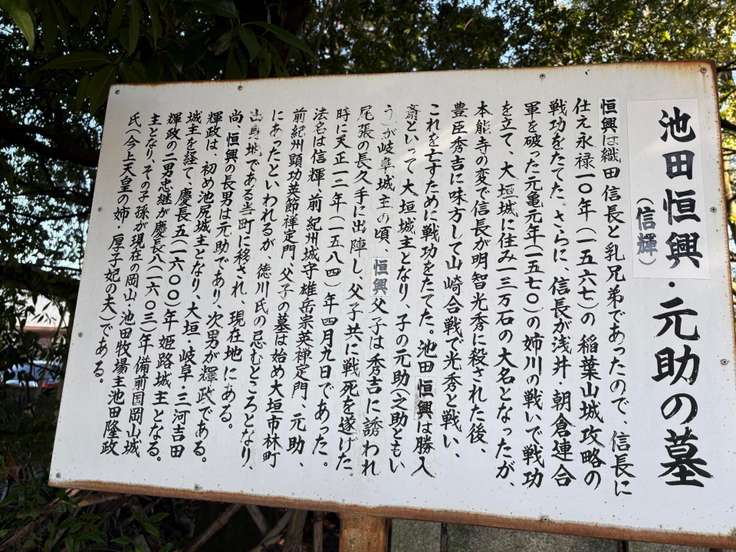 池田恒興・元助の墓
（信輝）
恒興は織田信長と乳兄弟であったので、信長に
仕え永禄一〇年（一五六七）の稲葉山城攻略の
戦功をたてた。さらに、信長が浅井・朝倉連合
軍を破った元亀元年（一五七〇）の姉川の戦いで戦功
を立て、大垣城に住み一三万石の大名となったが、
本能寺の変で信長が明智光秀に殺された後、
豊臣秀吉に味方して山崎合戦で光秀と戦い、
これを亡すために戦功をたてた。池田恒興は勝入
斎といって大垣城主となり、子の元助（之助ともい
う）が岐阜城主の頃、恒興父子は秀吉に誘われ
尾張の長久手に出陣し、父子共に戦死を遂げた。
時に天正一二年（一五八四）年四月九日であった。
法名は信輝・前紀州城守雄岳宗英禅定門、元助、
前紀州顕功英節禅定門、父子の墓は始め大垣市林町
にあったといわれるが、徳川氏の忌むところとなり、
出身地である当町に移され、現在地にある。
尚、恒興の長男は元助であり、次男が輝政である。
輝政は、初め池尻城主となり、大垣・岐阜・三河吉田
城主を経て、慶長五（一六〇〇）年姫路城主となる。
輝政の二男忠継が慶長八（一六〇三）年備前国岡山城
主となり、その子孫が現在の岡山、池田牧場主池田隆政
氏（今上天皇の姉・厚子妃の夫）である。